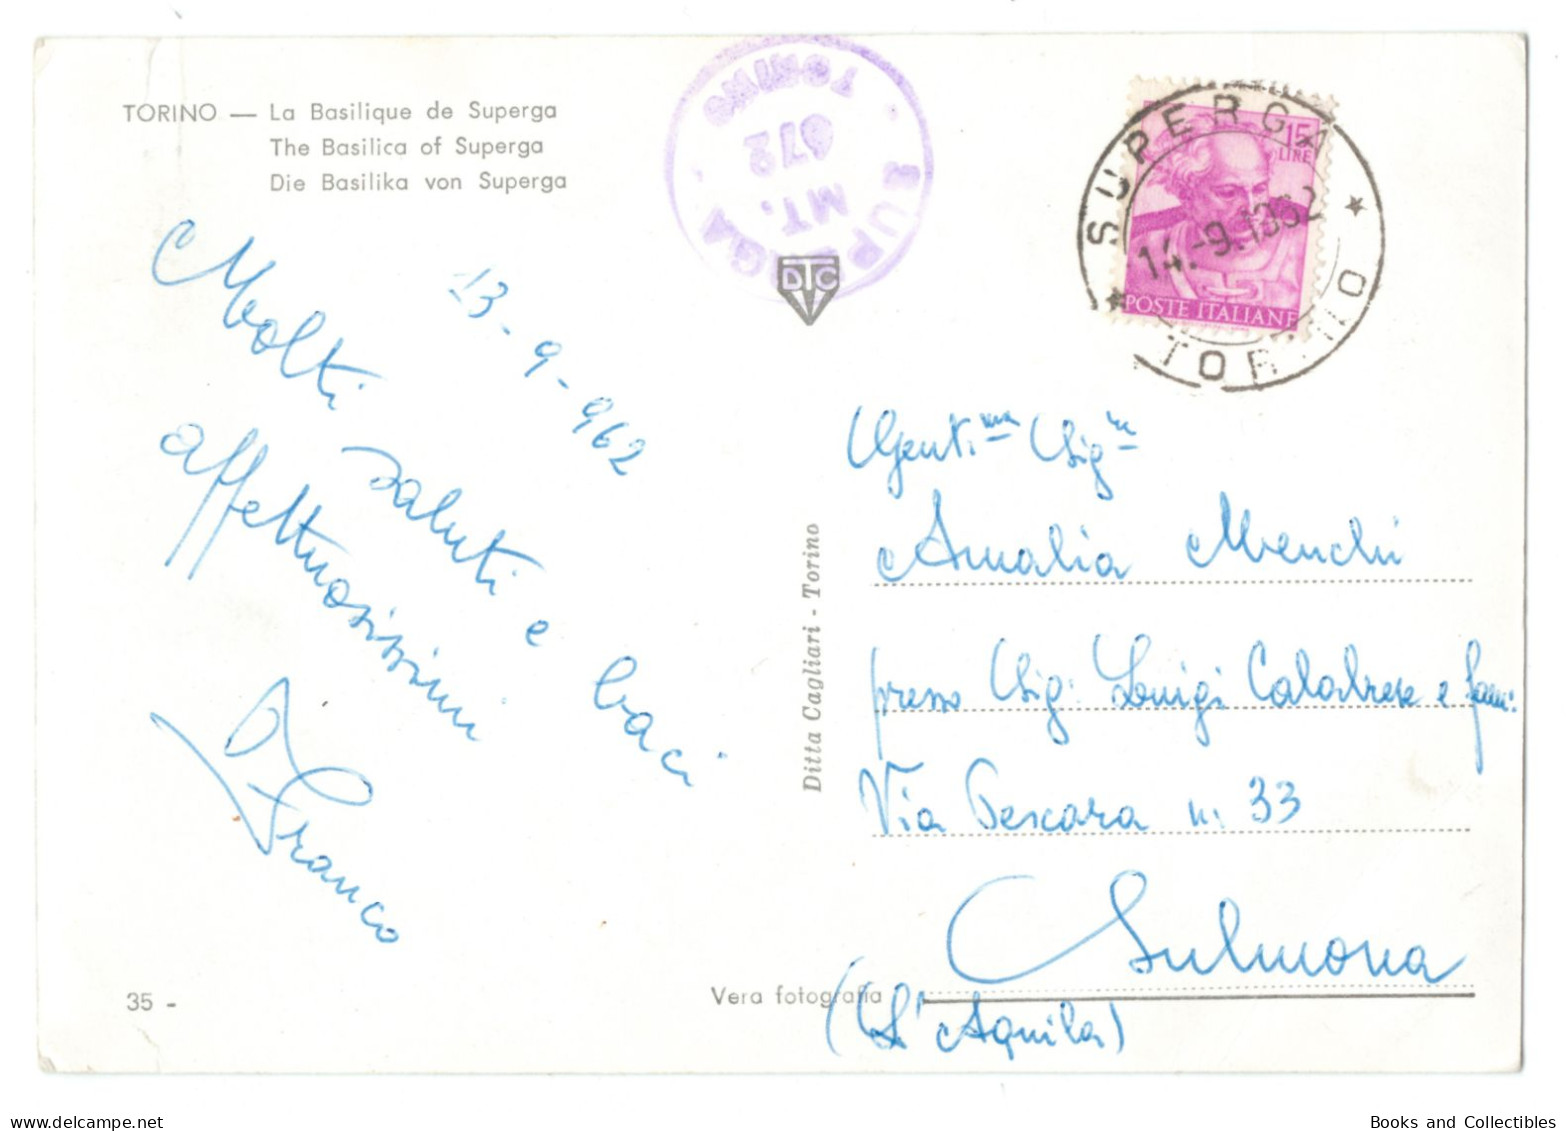 TORINO — La Basilique de Superga
The Basilica of Superga
Die Basilika von Superga
SUPERGA
MT.
672
TORINO
DTC
15
LIRE
POSTE ITALIANE
SUPERGA
14.-9.1962
* TORINO *
13-9-962
Molti saluti e baci
affettuosissimi
Franco
Ditta Cagliari - Torino
Gent.ma Sig.na
Amalia Menchi
presso Sig: Luigi Calabrese e fam:
Via Pescara n. 33
Sulmona
(L'Aquila)
35 -
Vera fotografia
Books and Collectibles